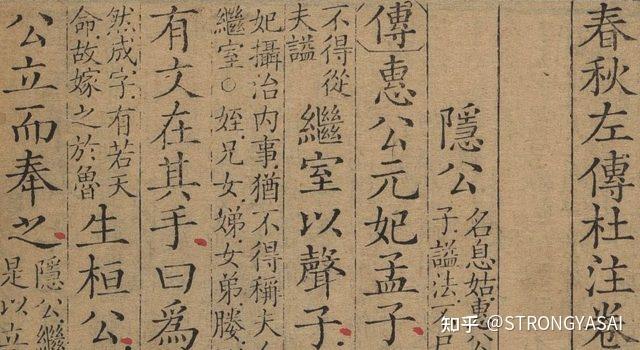 春秋左傳杜注卷
隱公
名息姑惠公
子謚法不
傳惠公元妃孟子
不得從
夫謚
繼室以聲子
妃攝治内事猶不得稱夫
繼室○姪兄女娣女弟媵
有文在其手曰爲
然成字有若天
命故嫁之於魯
生桓公
公立而奉之
隱公繼
是以立
知乎 @STRONGYASAI